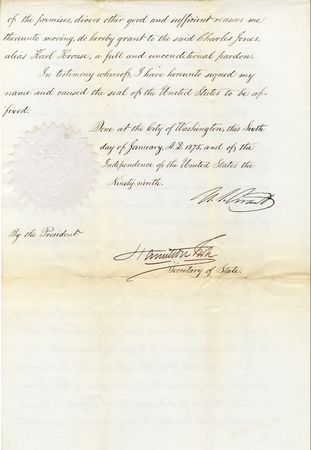 of the premises, divers other good and sufficient reasons me
thereunto moving, do hereby grant to the said Charles Jones,
alias Karl Krouse, a full and unconditional pardon.
In testimony whereof, I have hereunto signed my
name and caused the seal of the United States to be af-
fixed.
Done at the City of Washington, this Sixth
day of January, A.D. 1875, and of the
Independence of the United States the
Ninety-ninth.
U. S. Grant
By the President
Hamilton Fish
Secretary of State.